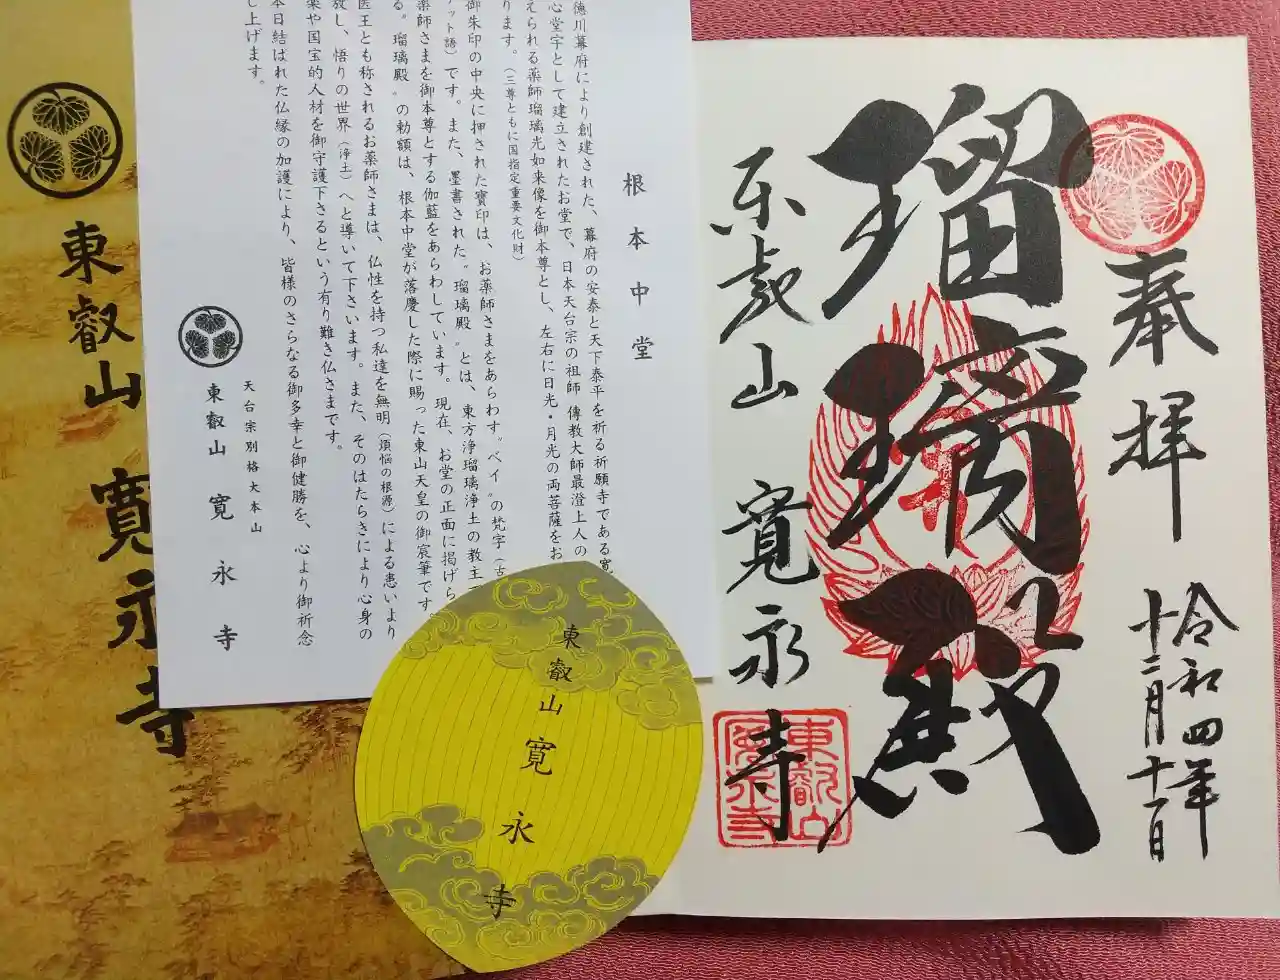 奉拝
令和四年
十二月十一日
瑠璃殿
東叡山 寛永寺
東叡山
寛永寺
根本中堂
徳川幕府により創建された、幕府の安泰と天下泰平を祈る祈願寺である寛
心堂宇として建立されたお堂で、日本天台宗の祖師 傳教大師最澄上人の
えられる薬師瑠璃光如来像を御本尊とし、左右に日光・月光の両菩薩をお
ります。(三尊ともに国指定重要文化財)
御朱印の中央に押された寶印は、お薬師さまをあらわす〝ベイ〟の梵字(古
ット語)です。また、墨書された〝瑠璃殿〟とは、東方浄瑠璃浄土の教主
薬師さまを御本尊とする伽藍をあらわしています。現在、お堂の正面に掲げら
る〝瑠璃殿〟の勅額は、根本中堂が落慶した際に賜った東山天皇の御宸筆です。
医王とも称されるお薬師さまは、仏性を持つ私達を無明(煩悩の根源)による患いより
放し、悟りの世界(浄土)へと導いて下さいます。また、そのはたらきにより心身の
楽や国宝的人材を御守護下さるという有り難き仏さまです。
本日結ばれた仏縁の加護により、皆様のさらなる御多幸と御健勝を、心より御祈念
し上げます。
天台宗別格大本山
東叡山 寛永寺
東叡山 寛永寺
東叡山 寛永寺